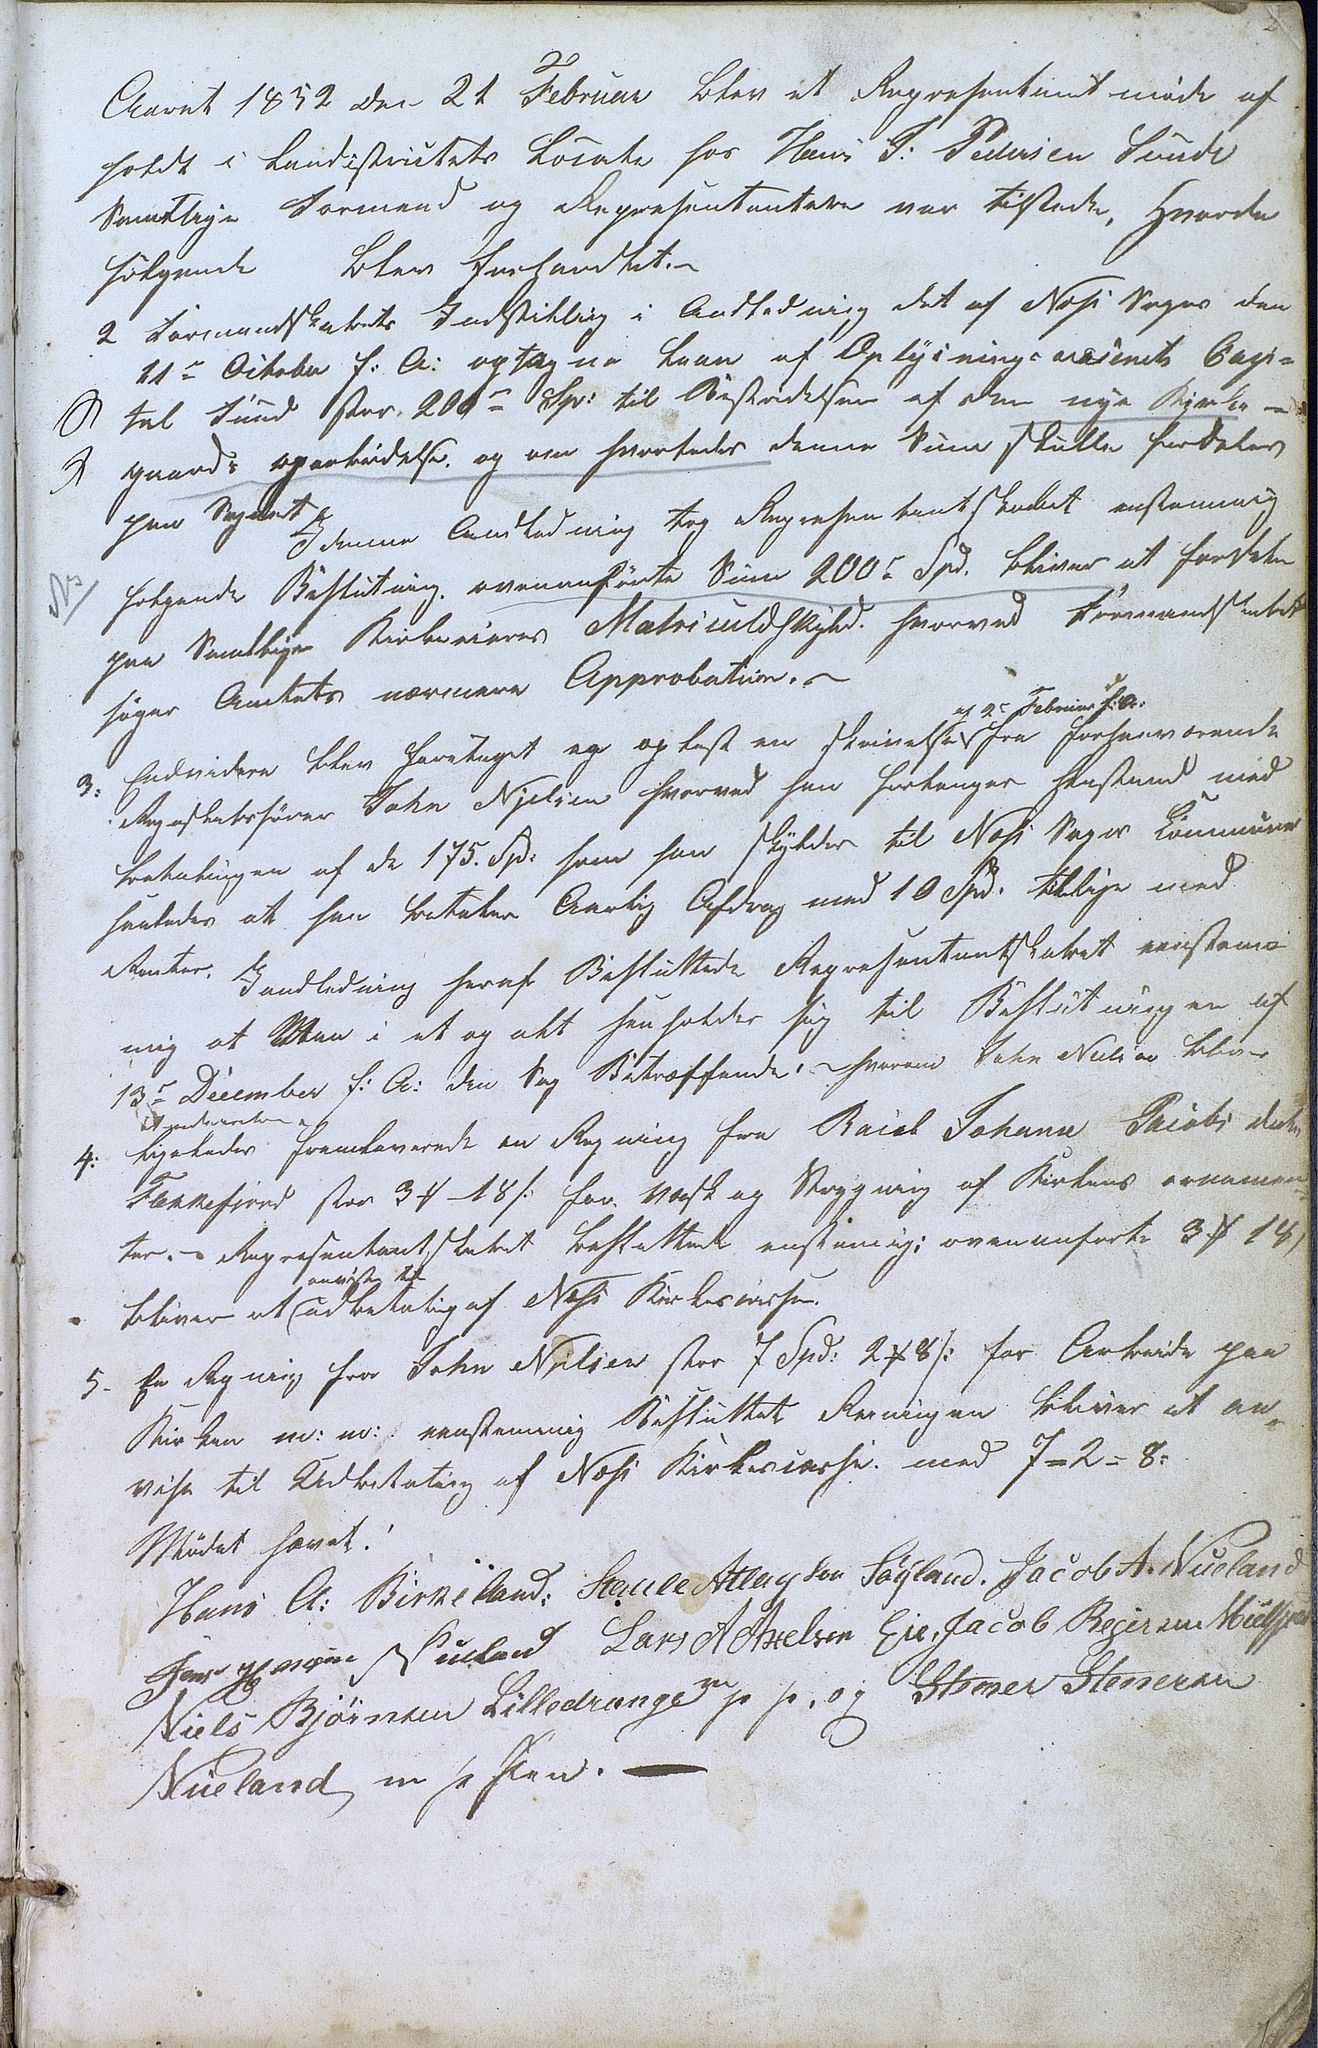 2
Aaret 1852 den 21 Februar blev et Representantmøde af
holdt i Landistrictets Locale hos Hans T: Pedersen Sunde
Samtlige Formænd og Representantere var tilstede, Hvorda
følgende blev forhandlet.~
2 Formandskabets Indstilling i Andledning det af Næs Sogn den
11te October f: A: optagne Laan af Oplysningsvæsenets Capi=
tal Fund stor 200 Sp: til Bestridelsen af den nye Kirke-
gaards oparbeidelse. og om hvorledes denne Sum skulle fordeles
paa Sognet
I denne Andledning tog Representantskabet enstemmig
NB
følgende Beslutning. ovenanførte Sum 200 Spd. bliver at fordele
paa Samtlige Kirkeeieres Matriculskyld. hvorved Formandskabet
søger Amtets nærmere Approbation.~
af 2 Februar f: A:
3: Endvidere blev foretaget og oplæst en skrivelse fra forhenværende
Regnskabsfører John Nielsen hvorved han forlanger Henstand med
betalingen af de 175. Spd: som han skylder til Næs Sogns Commune
saaledes at han betaler Aarlig Afdrag med 10 Spd. tillige med
Renter. I andledning heraf Besluttede Representantskabet eenstem=
mig at Man i et og alt henholder sig til Beslutningen af
13 December f: A: den Sag Betræffende.~ hvorom John Nielsen bliver
at underrette
4: Ligeledes fremleverede en Regning fra Johanne Jacobs datter
Fækkefjord stor 3 # 18 s: for Vask og Strygning af Kirkens ornamen=
ter.~ Representantskabet besluttede enstemig; ovenanførte 3 # 18
anvise til
bliver at udbetaling af Næs Kirkecasse.
5- En Regning fra John Nielsen stor 7 Spd: 2 # 8 s: for Arbeide paa
Kirken m: m: eenstemmig Besluttet Regningen bliver at an=
vise til Udbetaling af Næs Kirkecasse. med 7=2=8:
Mødet hævet!
Hans A: Birkeland: Atlagsen Søyland. Jacob A. Nueland
Nueland Lars A Axelsen Eie, Jacob Reiersen
Niels Bjørnsen Lilledrange m p p. og Stener Stenersen
Nueland m p Pen. —